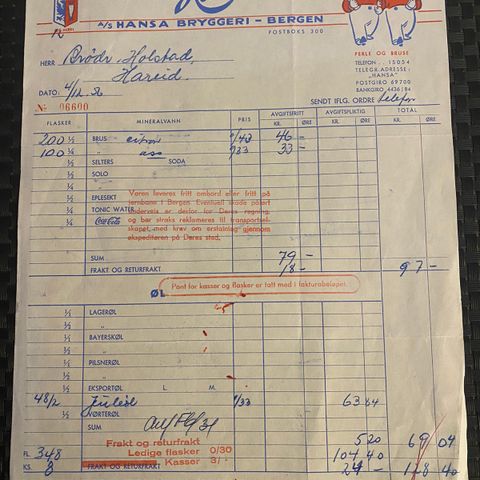 A/S HANSA BRYGGERI – BERGEN
POSTBOKS 300
HERR Brødr. Holstad,
Hareid.
PERLE OG BRUSE
TELEFON . . 15054
TELEGR.ADRESSE:
„HANSA"
POSTGIRO 69700
BANKGIRO 4436|84
DATO: 4/12.
SENDT IFLG. ORDRE telefon
№ 06600
FLASKER MINERALVANN PRIS AVGIFTSFRITT AVGIFTSPLIKTIG TOTAL
KR. ØRE KR. ØRE KR. ØRE
200 ½ BRUS 46 –
100 ½ " /33 33 –
½ SELTERS SODA
½ SOLO
½ "
½ EPLESEKT
½ TONIC WATER
Coca-Cola
Varen leveres fritt ombord eller fritt på
jernbane i Bergen. Eventuell skade påført
underveis er derfor for Deres regning,
og bør straks reklameres til transportsel-
skapet, med krav om erstatning gjennom
ekspeditøren på Deres sted.
SUM 79 –
FRAKT OG RETURFRAKT 18 – 97 –
Pant for kasser og flasker er tatt med i fakturabeløpet.
ØL
½ LAGERØL
½ "
½ BAYERSKØL
½ "
½ PILSNERØL
½ "
½ EKSPORTØL L. M.
48/2 ½ Juleøl /33 63 84
½ VØRTERØL
SUM
Frakt og returfrakt 5 20 69 04
FL. 348 Ledige flasker 0/30 104 40
KS. 8 FRAKT OG RETURFRAKT Kasser 3/- 24 – 128 40